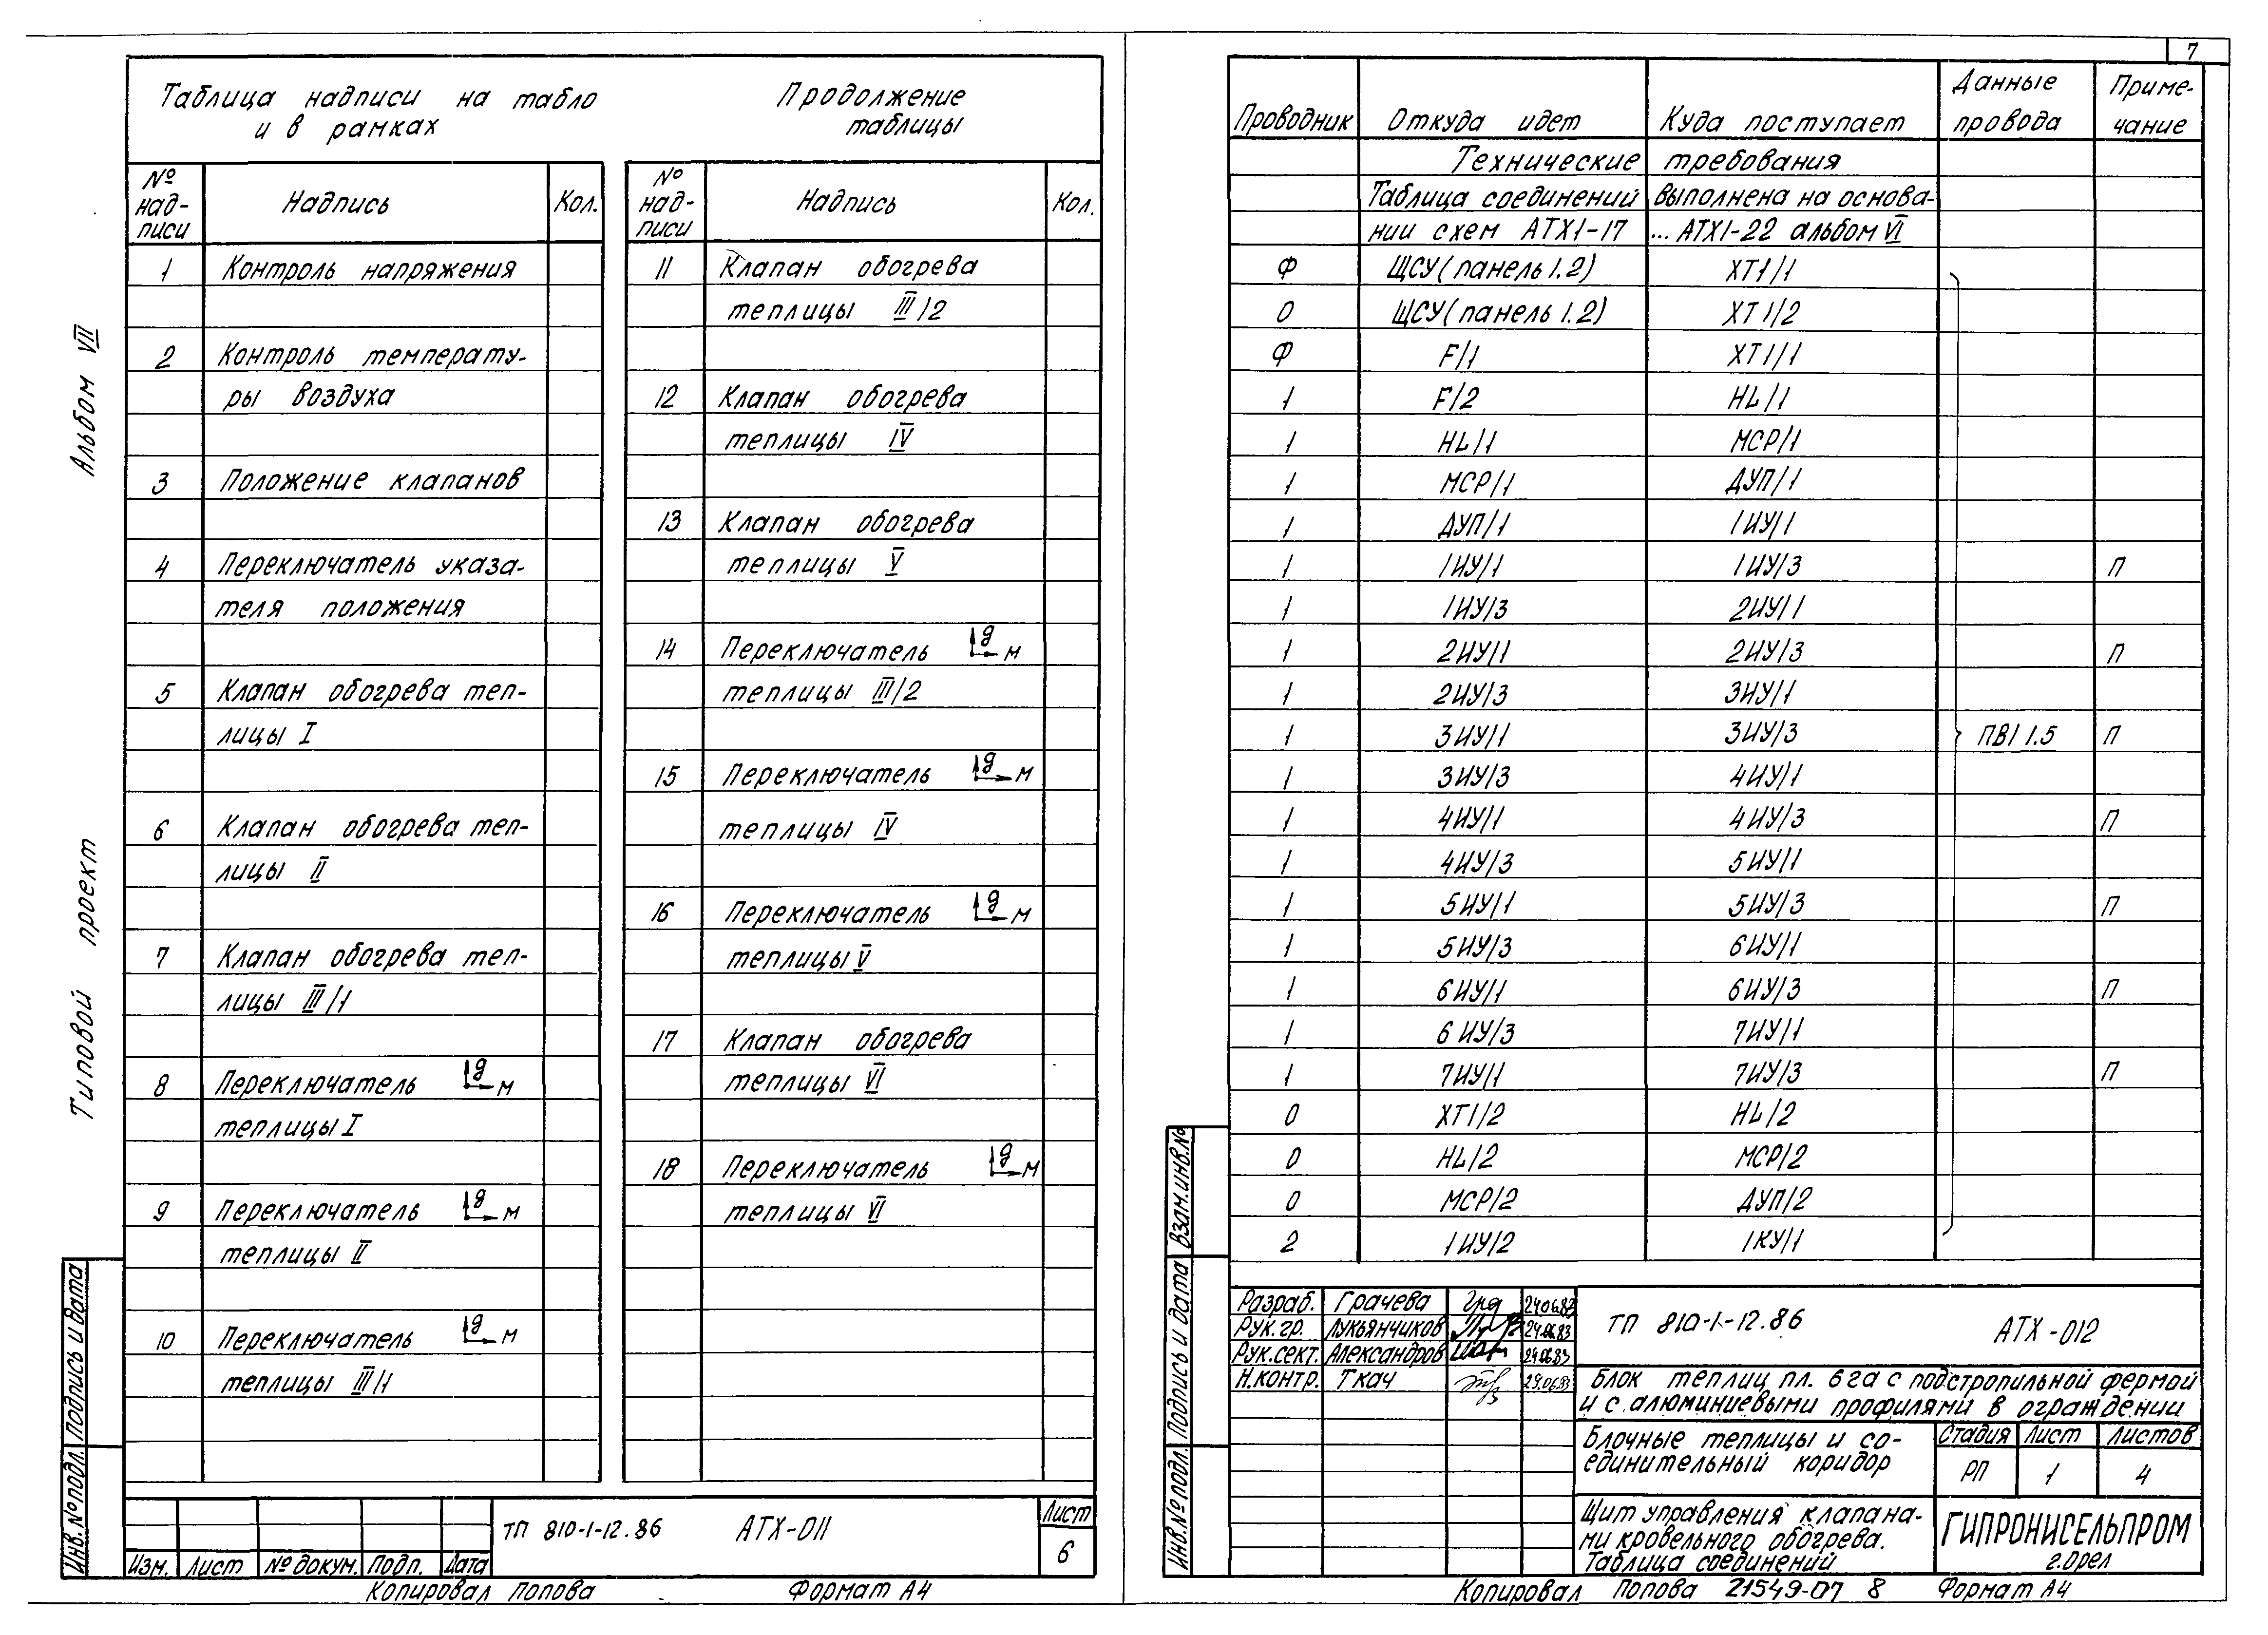 Альбом VII
Типовой проект
Таблица надписи на табло
и в рамках
№ над-писи Надпись Кол.
1 Контроль напряжения
2 Контроль температу-
ры воздуха
3 Положение клапанов
4 Переключатель указа-
теля положения
5 Клапан обогрева теп-
лицы I
6 Клапан обогрева теп-
лицы II
7 Клапан обогрева теп-
лицы III/1
8 Переключатель д м
теплицы I
9 Переключатель д м
теплицы II
10 Переключатель д м
теплицы III/1
Продолжение
таблицы
№ над-писи Надпись Кол.
11 Клапан обогрева
теплицы III/2
12 Клапан обогрева
теплицы IV
13 Клапан обогрева
теплицы V
14 Переключатель д м
теплицы III/2
15 Переключатель д м
теплицы IV
16 Переключатель д м
теплицы V
17 Клапан обогрева
теплицы VI
18 Переключатель д м
теплицы VI
Инв.№подл. Подпись и дата
Изм. Лист № докум. Подп. Дата
ТП 810-1-12.86 АТХ-011
Лист
6
Копировал Попова Формат А4
7
Проводник Откуда идет Куда поступает Данные провода Приме-чание
Технические требования
Таблица соединений выполнена на основа-
нии схем АТХ1-17 ... АТХ1-22 альбом VI
Ф ЩСУ(панель 1.2) ХТ1/1
0 ЩСУ(панель 1.2) ХТ1/2
Ф F/1 ХТ1/1
1 F/2 HL/1
1 HL/1 МСР/1
1 МСР/1 ДУП/1
1 ДУП/1 1ИУ/1
1 1ИУ/1 1ИУ/3 П
1 1ИУ/3 2ИУ/1
1 2ИУ/1 2ИУ/3 П
1 2ИУ/3 3ИУ/1
1 3ИУ/1 3ИУ/3 ПВ1 1.5 П
1 3ИУ/3 4ИУ/1
1 4ИУ/1 4ИУ/3 П
1 4ИУ/3 5ИУ/1
1 5ИУ/1 5ИУ/3 П
1 5ИУ/3 6ИУ/1
1 6ИУ/1 6ИУ/3 П
1 6ИУ/3 7ИУ/1
1 7ИУ/1 7ИУ/3 П
0 ХТ1/2 HL/2
0 HL/2 МСР/2
0 МСР/2 ДУП/2
2 1ИУ/2 1КУ/1
Инв.№подл. Подпись и дата Взам.инв.№
Разраб. Грачева 24.06.83
Рук.гр. Лукьянчиков 24.06.83
Рук.сект. Александров 24.06.83
Н.контр. Ткач 29.06.83
ТП 810-1-12.86 АТХ-012
Блок теплиц пл. 6га с подстропильной фермой
и с алюминиевыми профилями в ограждении
Блочные теплицы и со-
единительный коридор
Стадия Лист Листов
РП 1 4
Щит управления клапана-
ми кровельного обогрева.
Таблица соединений
ГИПРОНИСЕЛЬПРОМ
г.Орел
Копировал Попова 21549-07 8 Формат А4